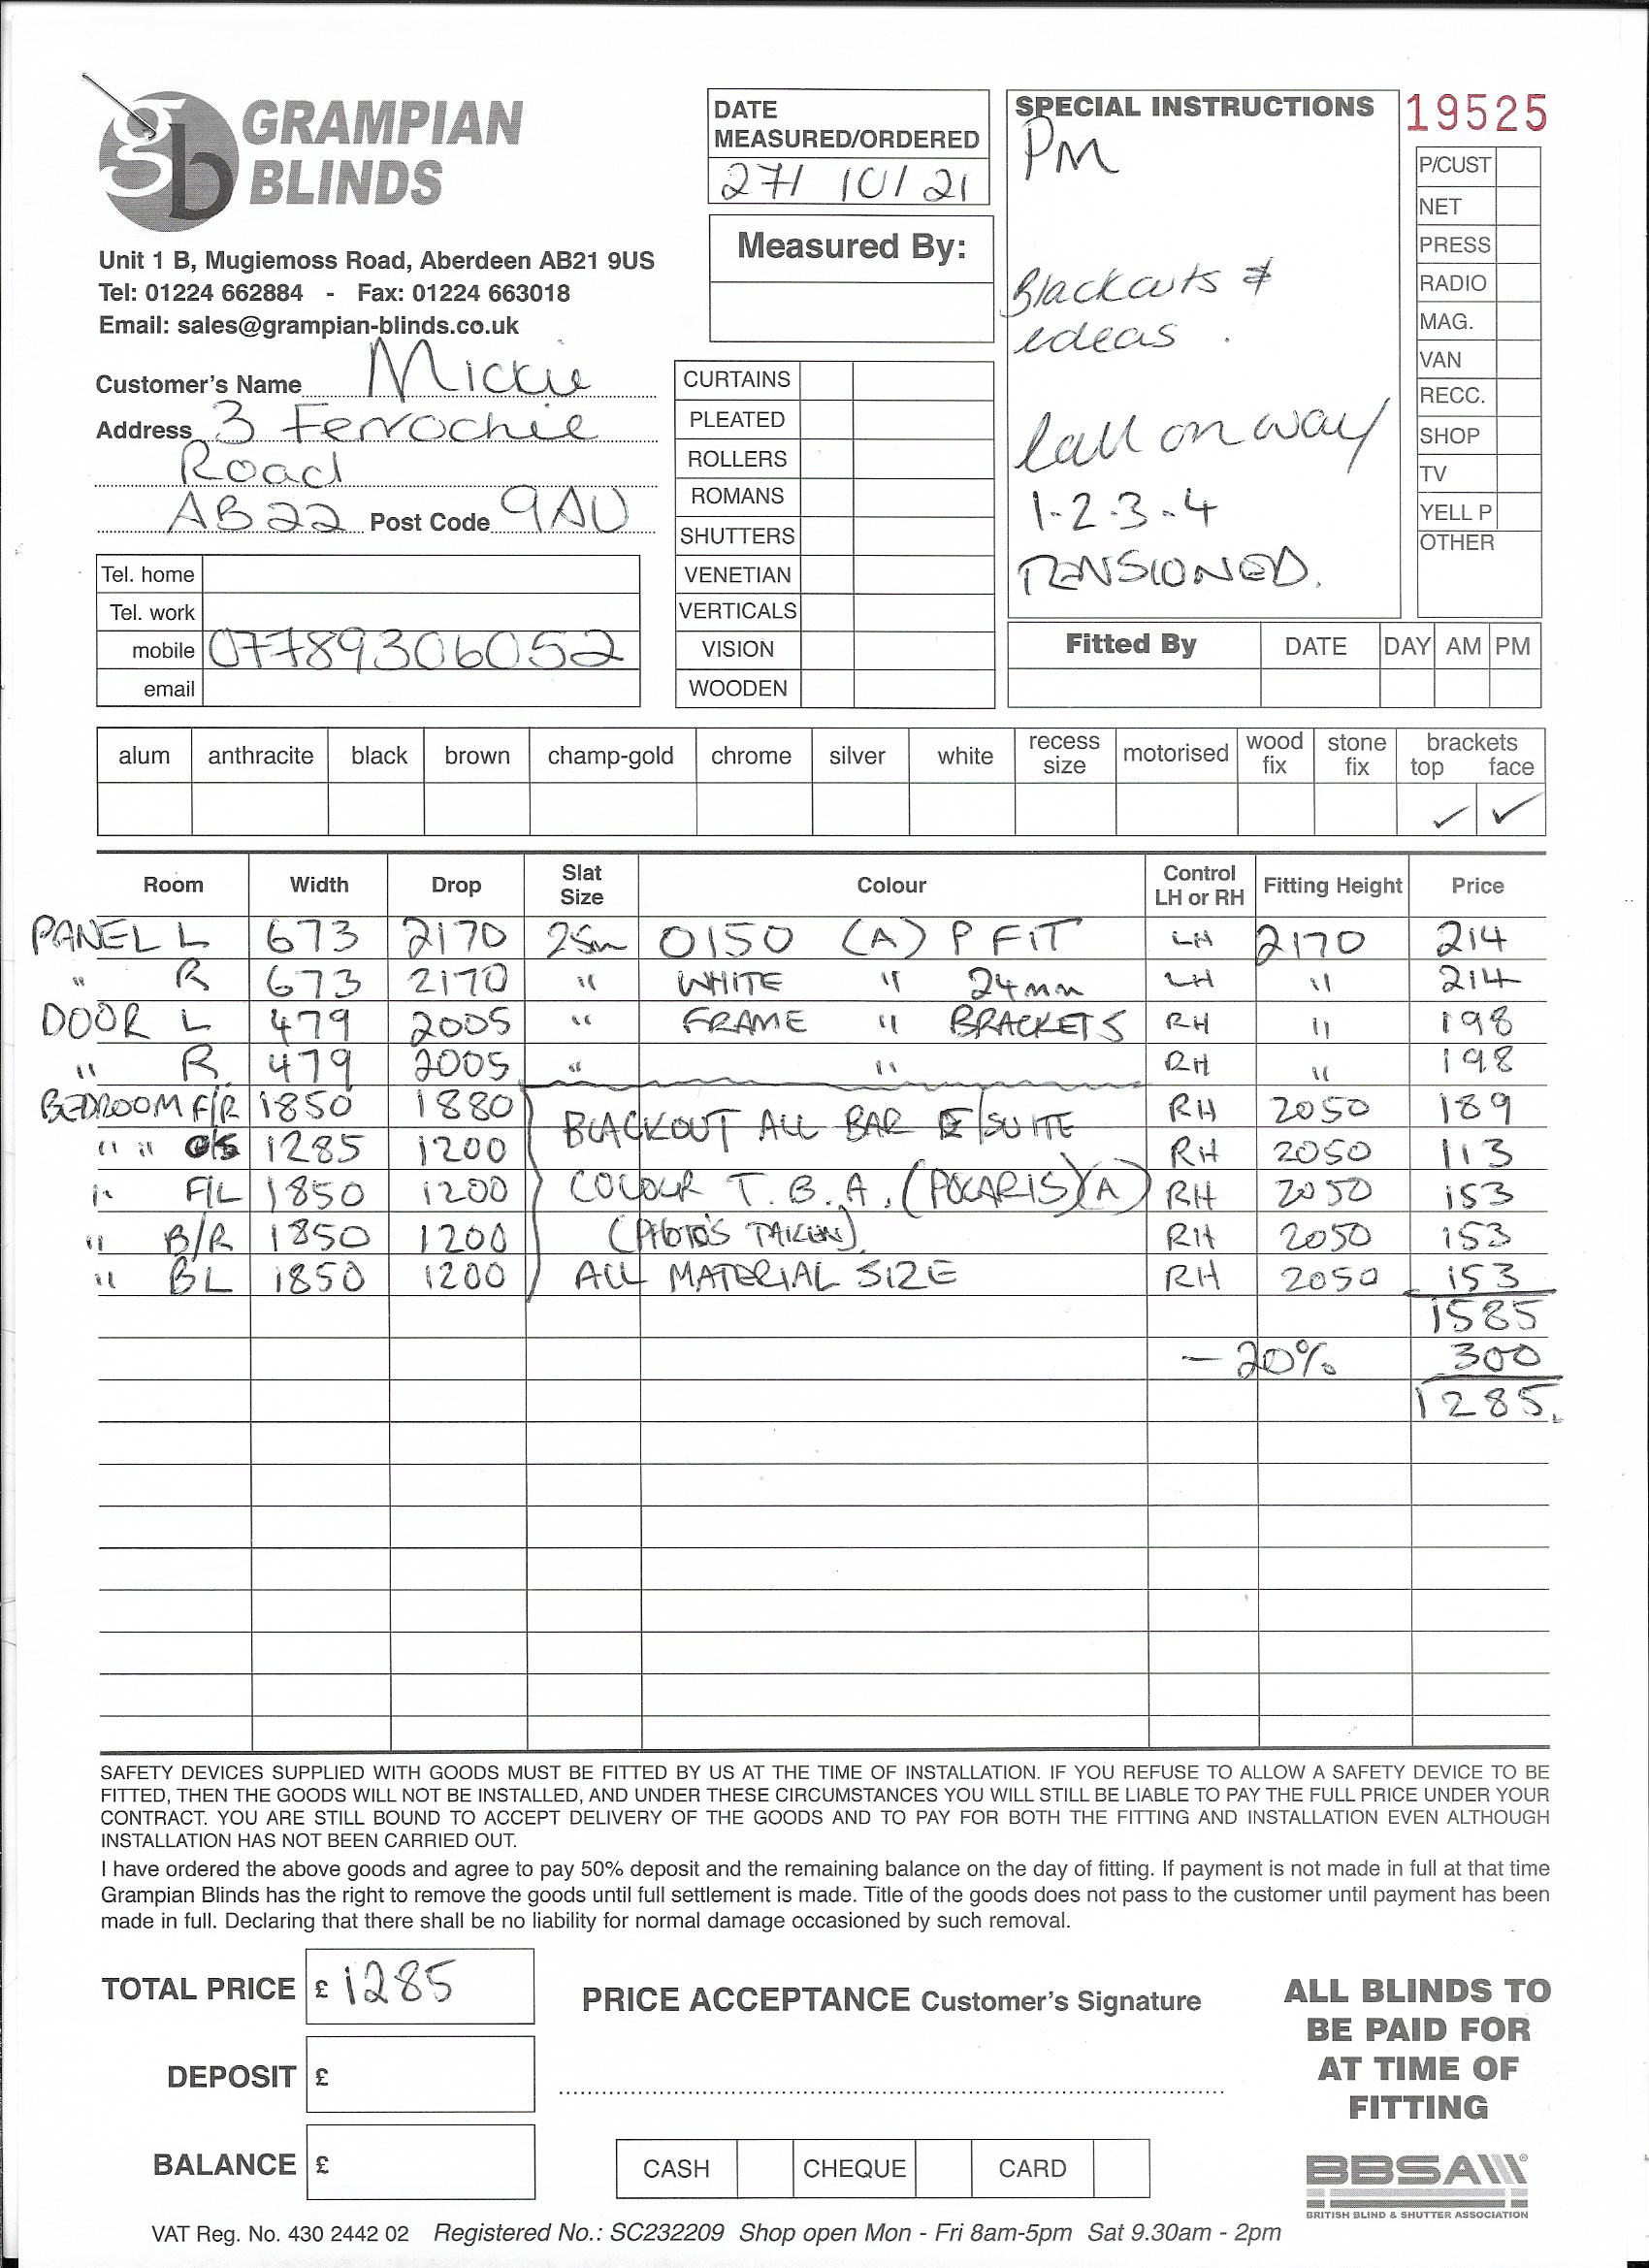 GRAMPIAN
BLINDS
Unit 1 B, Mugiemoss Road, Aberdeen AB21 9US
Tel: 01224 662884 - Fax: 01224 663018
Email: sales@grampian-blinds.co.uk
Customer's Name Mickie
Address 3 Ferrochie
Road
AB22 Post Code 9AU
Tel. home
Tel. work
mobile 07789306052
email
DATE
MEASURED/ORDERED
27/ 10/ 21
Measured By:
CURTAINS
PLEATED
ROLLERS
ROMANS
SHUTTERS
VENETIAN
VERTICALS
VISION
WOODEN
SPECIAL INSTRUCTIONS
PM
Blackouts &
ideas.
Call on way
1-2-3-4
TENSIONED.
19525
P/CUST
NET
PRESS
RADIO
MAG.
VAN
RECC.
SHOP
TV
YELL P
OTHER
Fitted By DATE DAY AM PM
alum anthracite black brown champ-gold chrome silver white recess size motorised wood fix stone fix brackets top face
✓ ✓
Room Width Drop Slat Size Colour Control LH or RH Fitting Height Price
PANEL L 673 2170 25m 0150 (A) P FIT LH 2170 214
" R 673 2170 " WHITE " 24mm LH " 214
DOOR L 479 2005 " FRAME " BRACKETS RH " 198
" R 479 2005 " " RH " 198
BEDROOM F/R 1850 1880 BLACKOUT ALL BAR E/SUITE RH 2050 189
" " 1285 1200 RH 2050 113
" F/L 1850 1200 COLOUR T.B.A. (POLARIS)(A) RH 2050 153
" B/R 1850 1200 (PHOTO'S TAKEN) RH 2050 153
" BL 1850 1200 ALL MATERIAL SIZE RH 2050 153
1585
- 20% 300
1285.
SAFETY DEVICES SUPPLIED WITH GOODS MUST BE FITTED BY US AT THE TIME OF INSTALLATION. IF YOU REFUSE TO ALLOW A SAFETY DEVICE TO BE
FITTED, THEN THE GOODS WILL NOT BE INSTALLED, AND UNDER THESE CIRCUMSTANCES YOU WILL STILL BE LIABLE TO PAY THE FULL PRICE UNDER YOUR
CONTRACT. YOU ARE STILL BOUND TO ACCEPT DELIVERY OF THE GOODS AND TO PAY FOR BOTH THE FITTING AND INSTALLATION EVEN ALTHOUGH
INSTALLATION HAS NOT BEEN CARRIED OUT.
I have ordered the above goods and agree to pay 50% deposit and the remaining balance on the day of fitting. If payment is not made in full at that time
Grampian Blinds has the right to remove the goods until full settlement is made. Title of the goods does not pass to the customer until payment has been
made in full. Declaring that there shall be no liability for normal damage occasioned by such removal.
TOTAL PRICE £ 1285
DEPOSIT £
BALANCE £
PRICE ACCEPTANCE Customer's Signature
CASH CHEQUE CARD
ALL BLINDS TO
BE PAID FOR
AT TIME OF
FITTING
BBSA
BRITISH BLIND & SHUTTER ASSOCIATION
VAT Reg. No. 430 2442 02 Registered No.: SC232209 Shop open Mon - Fri 8am-5pm Sat 9.30am - 2pm